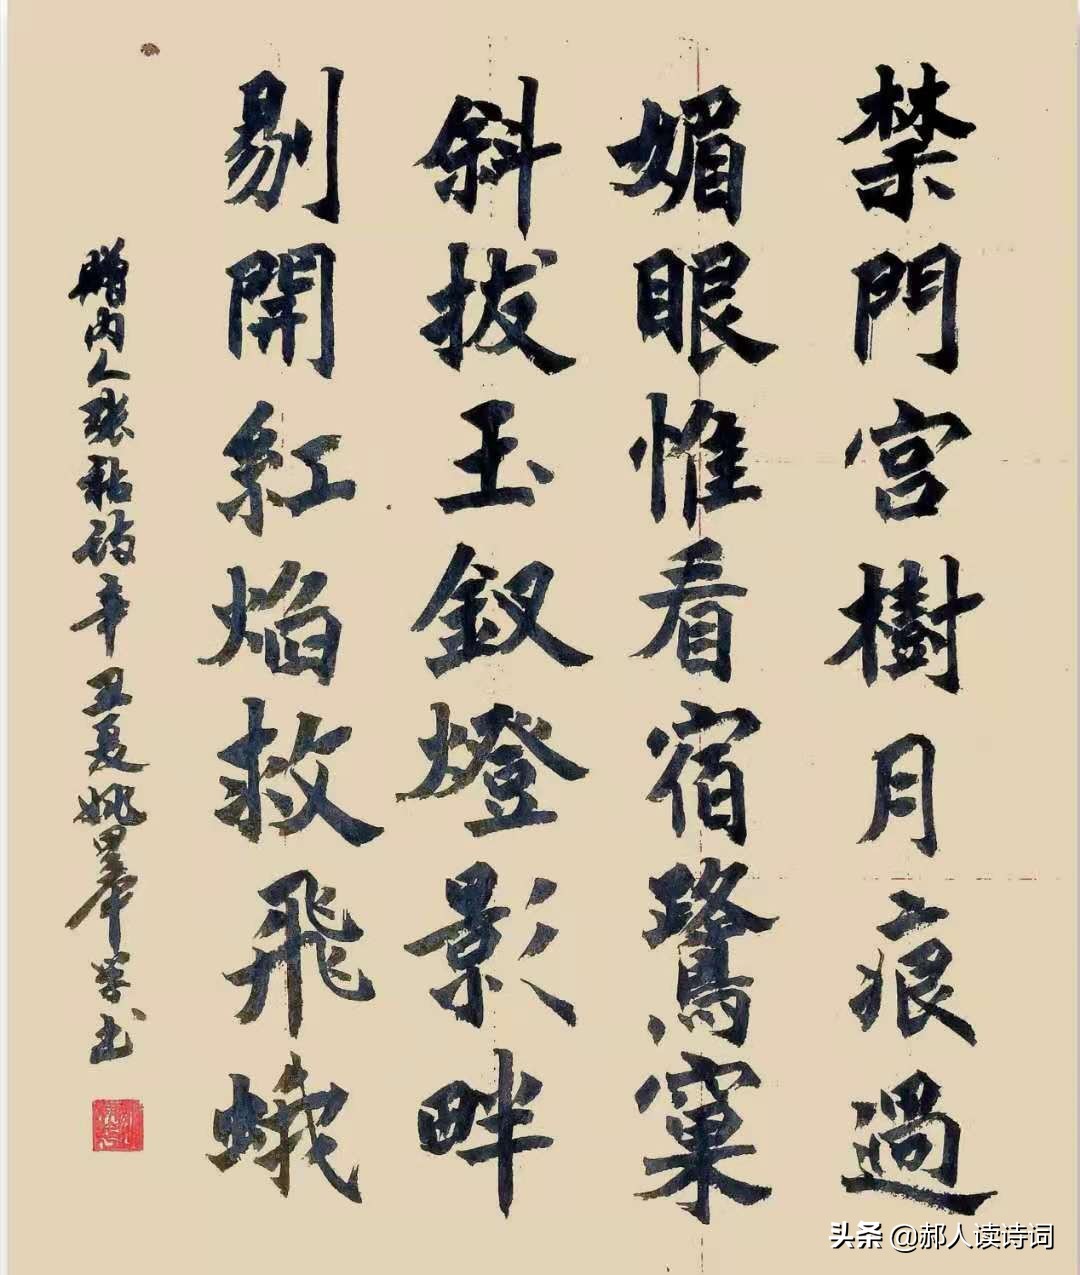 禁門宮樹月痕過
媚眼惟看宿鷺窠
斜拔玉釵燈影畔
剔開紅焰救飛蛾
贈內人張祜詩辛丑夏姚畢學书
头条 @郝人读诗词